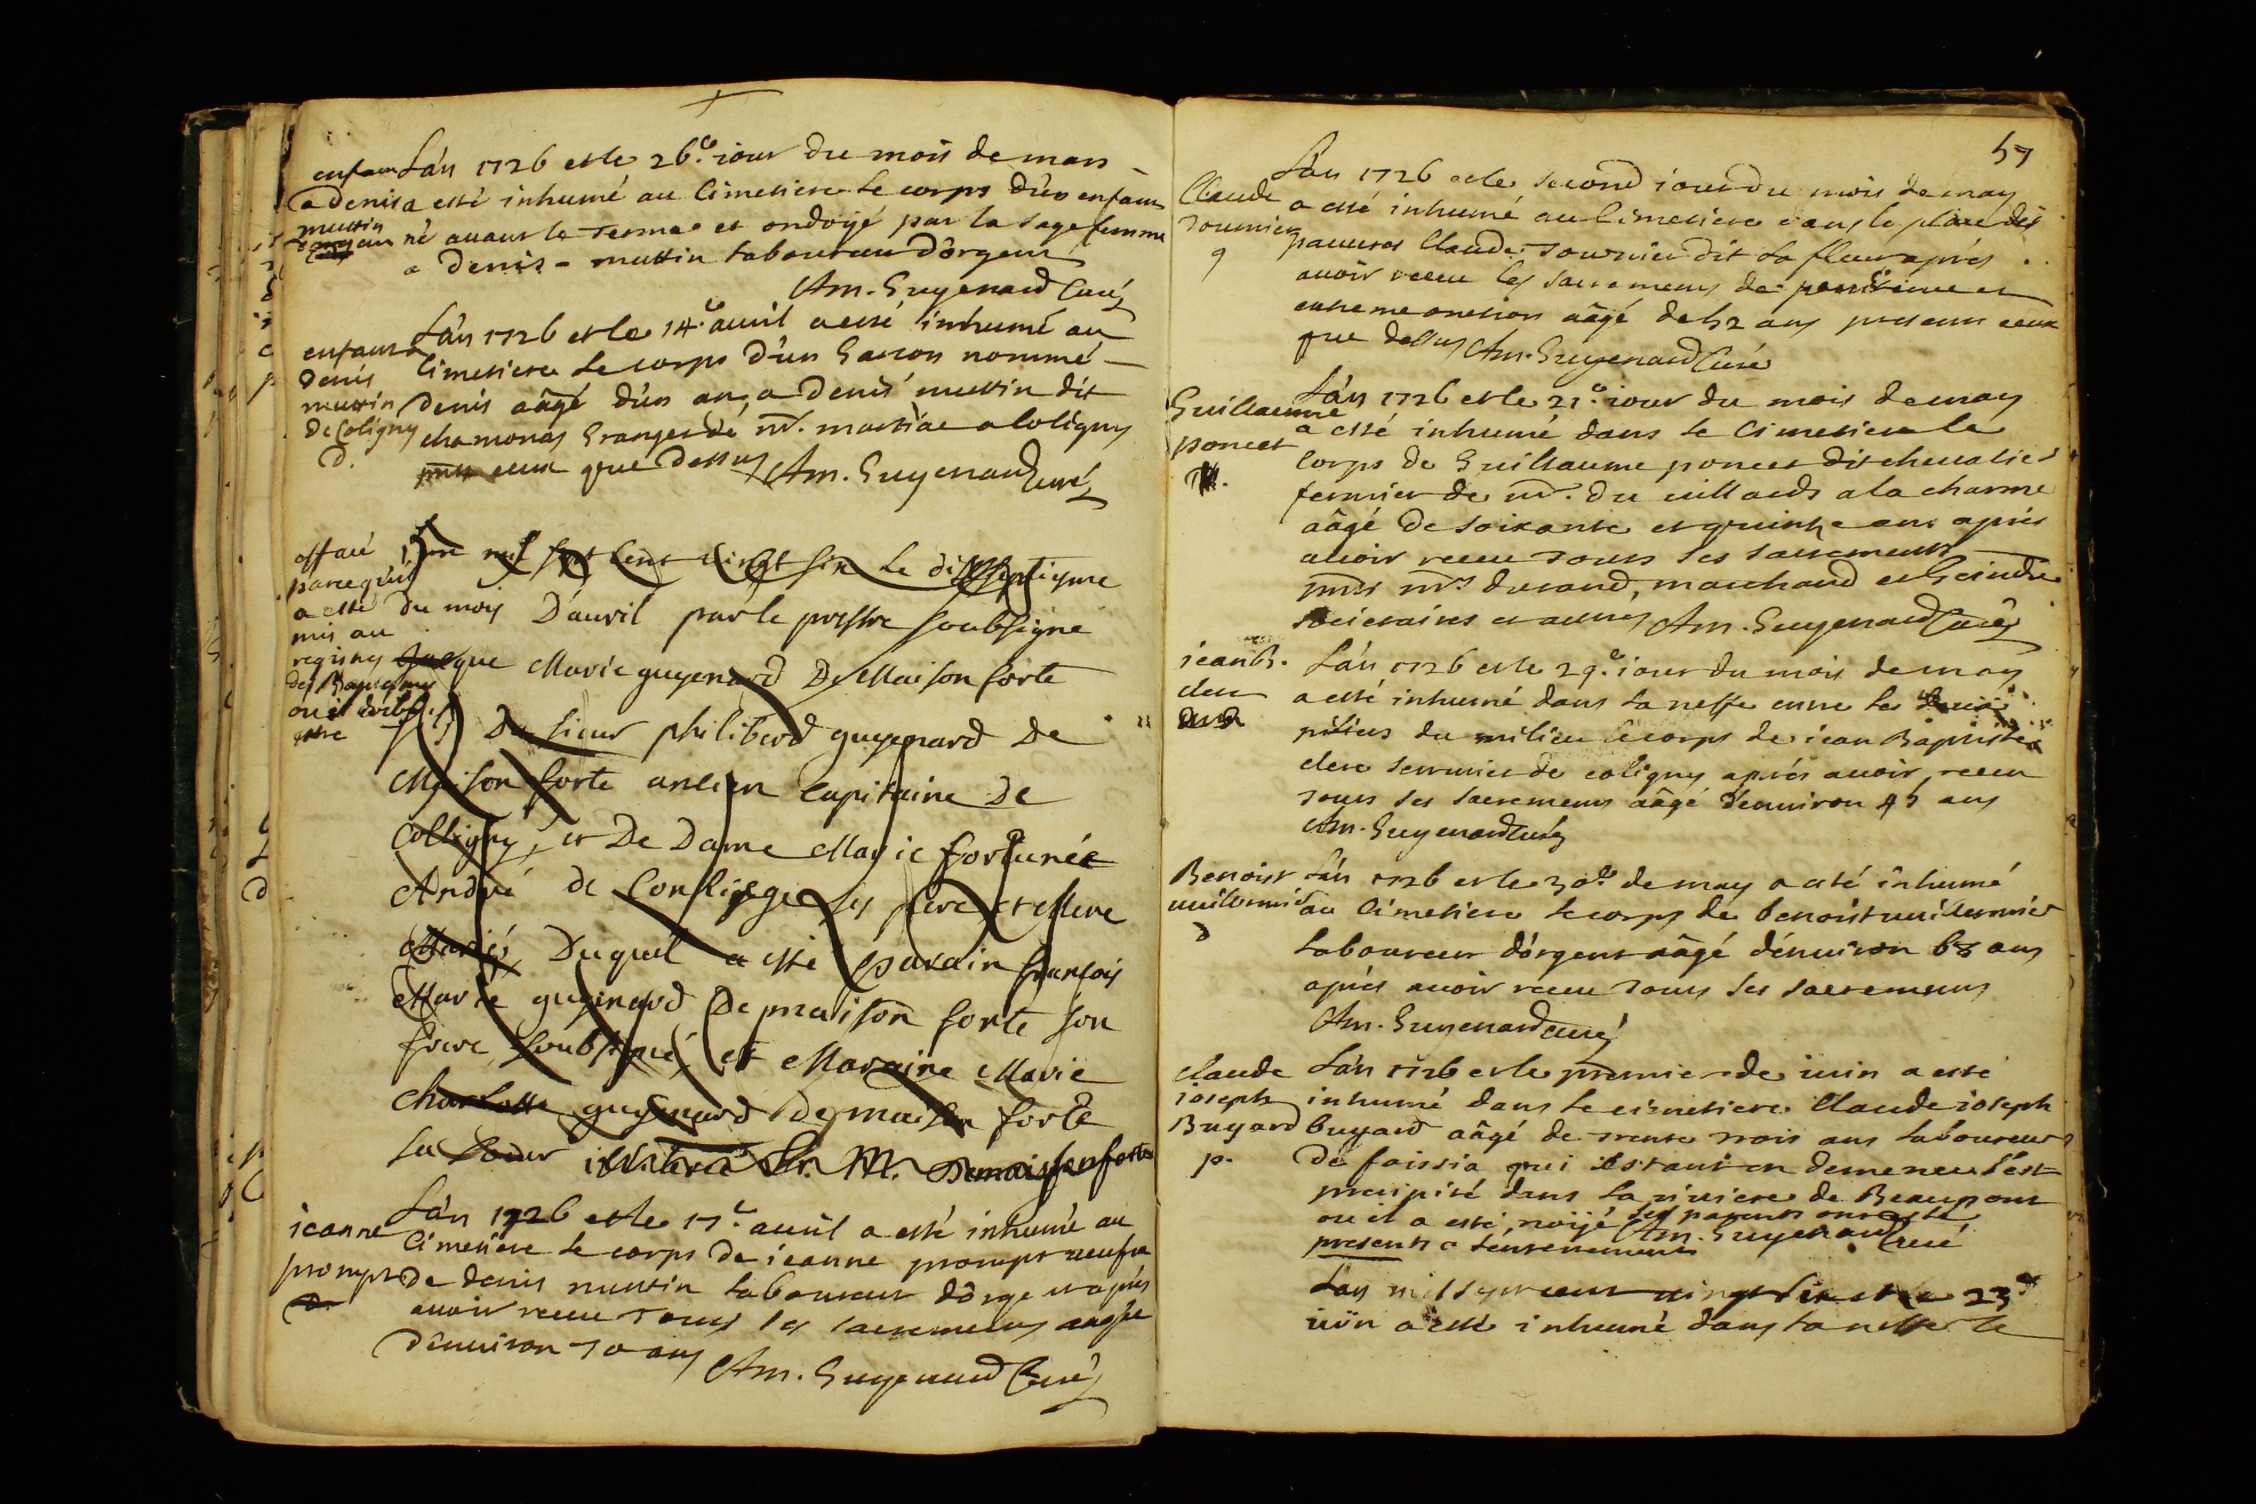 enfant
a denis
muttin
Lan 1726 et le 26e iour du mois de mars
a esté inhumé au Cimetiere le corps d'un enfant
né auant le terme et ondoyé par la sage femme
a denis - muttin laboureur d'orgent
Am. Guyenard Curé
enfant a
denis
muttin
de Coligny
d.
Lan 1726 et le 14e auril a esté inhumé au
Cimetiere le corps d'un Garcon nommé
denis aâgé d'un an, a denis muttin dit
chamonay Granger de mr. a Coligny
pnts ceux que dessus Am. Guyenard Curé
effacé
parcequ'il
a esté
mis au
registre
des Baptesmes
ou il doibt
estre
mil sept cent vingt six le dixseptiesme
du mois D'auril par le prestre soubsigne
que Marie guyenard De Maison forte
fils Du sieur philiberd guyenard De
Maison forte ancien Capitaine De
Colligny, et De Dame Marie fortunée
André de Conliege ses pere et Mere
Mariés, Duquel a esté parain françois
Marie guyenard De maison forte son
frere soubsigné, et Maraine Marie
Charlotte guyenard De maison forte
sa soeur illiterée fr. M. Demaisonforte
ieanne
prompt
d.
Lan 1726 et le 17e auril a esté inhumée au
Cimetiere le corps de ieanne prompt veufue
de denis muttin laboureur d'orge et apres
auoir receu tous les sacremens aagée
d'enuiron 70 ans Am. Guyenard Curé
57
Claude
tournier
Lan 1726 et le second iour du mois de may
a esté inhumé au Cimetiere dans la place des
pauures Claude tournier dit la fleur aprés
auoir receu les sacremens de penitence et
extreme onction aâgé de 52 ans presents ceux
que dessus Am. Guyenard Curé
Guillaume
poncet
Lan 1726 et le 21e iour du mois de may
a esté inhumé dans le Cimetiere le
Corps de Guillaume poncet dit cheualier
fermier de mr. du uillards a la charme
aâgé de soixante et quinze ans aprés
auoir receu tous les sacrements
pnts mrs durand, marchand et Geindre
societaires et autres Am. Guyenard Curé
iean B.
clerc
Lan 1726 et le 29e iour du mois de may
a esté inhumé dans la neffe entre les deux
piliers du milieu le corps de iean Baptiste
clerc serrurier de coligny aprés auoir receu
tous les sacremens aâgé d'enuiron 45 ans
Am. Guyenard Curé
Benoist
uuillermier
d
Lan 1726 et le 30e de may a esté inhumé
au Cimetiere le corps de benoist uuillermier
laboureur d'orgent aâgé d'enuiron 68 ans
aprés auoir receu tous les sacremens
Am. Guyenard Curé
Claude
ioseph
Buyard
p.
Lan 1726 et le premier de iuin a esté
inhumé dans le cimetiere Claude ioseph
buyard aâgé de trente trois ans laboureur
de foissia qui estant en s'est
precipité dans la riuiere de Beaupont
ou il a esté noijé ses parents ont esté
presents a l'enterrement Am. Guyenard Curé
Lan mil sept cent vingt six et le 23e
iuin a esté inhumé dans la neffe le